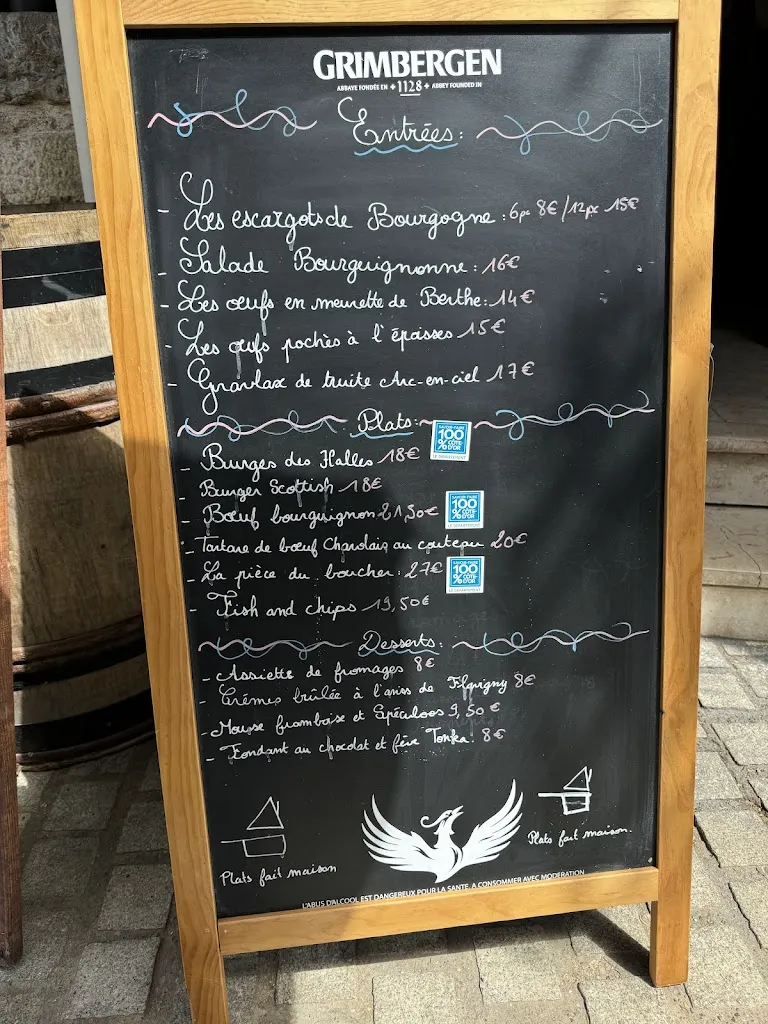 GRIMBERGEN
ABBAYE FONDÉE EN +1128+ ABBEY FOUNDED IN
Entrées:
- Les escargots de Bourgogne : 6pc 8€ / 12pc 15€
- Salade Bourguignonne : 16€
- Les œufs en meurette de Berthe : 14€
- Les œufs pochés à l'époisses 15€
- Gravlax de truite Arc-en-ciel 17€
Plats:
SAVOIR-FAIRE 100% CÔTE-D'OR LE DÉPARTEMENT
- Burger des Halles 18€
- Burger Scottish 18€
- Bœuf bourguignon 21,50€
SAVOIR-FAIRE 100% CÔTE-D'OR LE DÉPARTEMENT
- Tartare de bœuf Charolais au couteau 20€
- La pièce du boucher : 27€
SAVOIR-FAIRE 100% CÔTE-D'OR LE DÉPARTEMENT
- Fish and chips 19,50€
Desserts:
- Assiette de fromages 8€
- Crème brûlée à l'anis de Flavigny 8€
- Mousse framboise et Spéculoos 9,50€
- Fondant au chocolat et fève Tonka : 8€
Plats fait maison
Plats fait maison.
L'ABUS D'ALCOOL EST DANGEREUX POUR LA SANTÉ. A CONSOMMER AVEC MODÉRATION